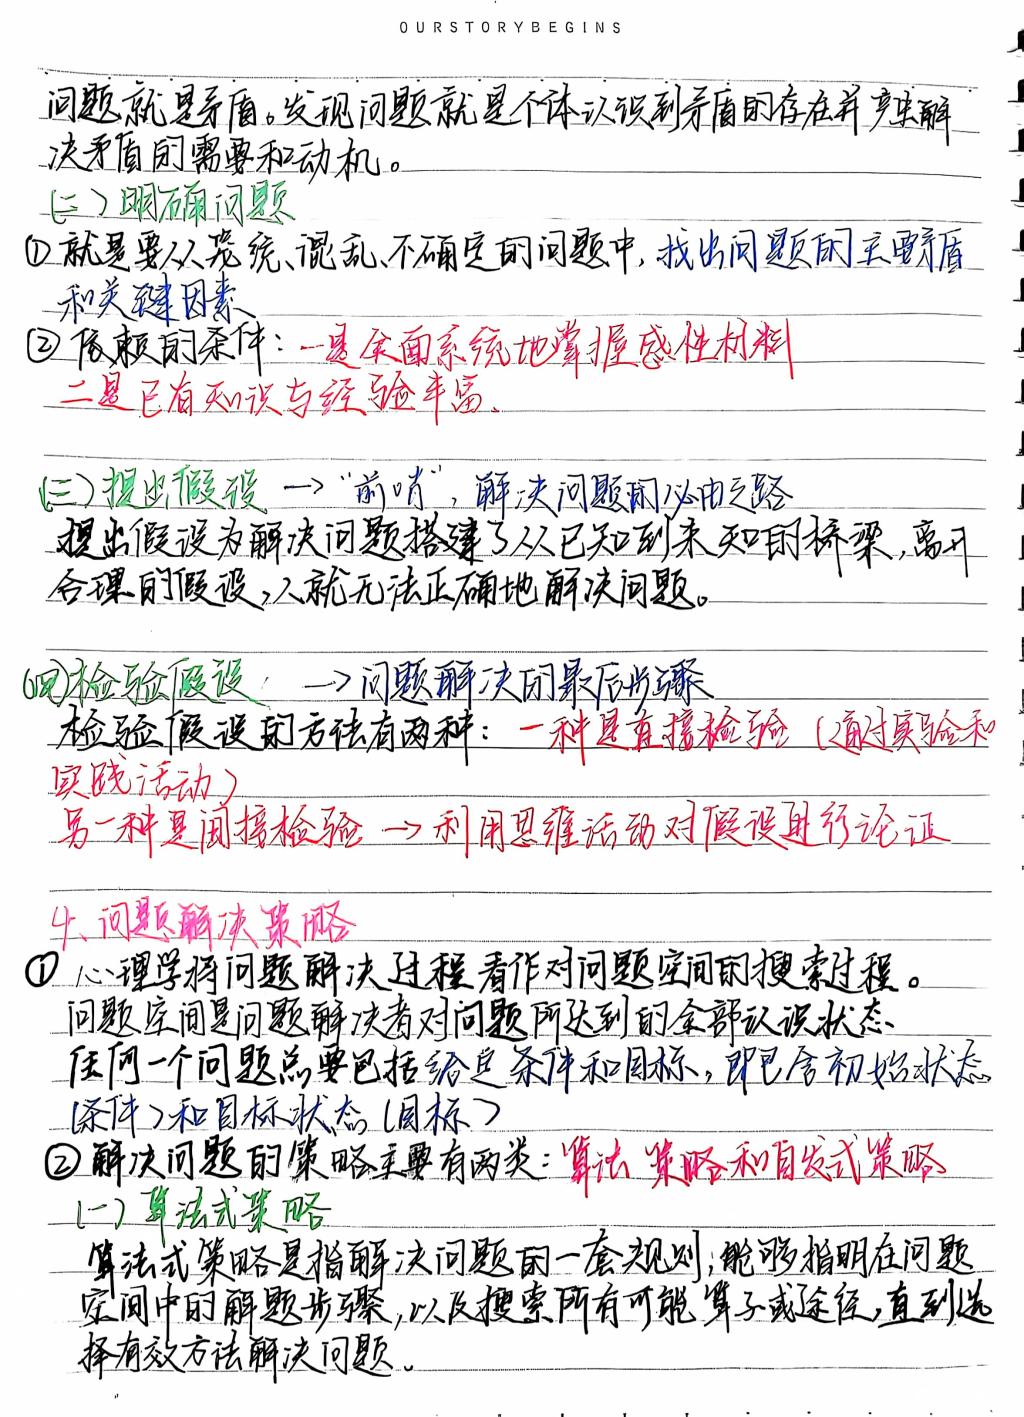 OURSTORYBEGINS
问题就是矛盾。发现问题就是个体认识到矛盾的存在并产生解
决矛盾的需要和动机。
(二)明确问题
①就是要从笼统、混乱、不确定的问题中,找出问题的主要矛盾
和关键因素
②依赖的条件:一是全面系统地掌握感性材料
二是已有知识与经验丰富、
(三)提出假设→"前哨",解决问题的必由之路
提出假设为解决问题搭建了从已知到未知的桥梁,离开
合理的假设,人就无法正确地解决问题。
(四)检验假设 →问题解决的最后步骤
检验假设的方法有两种:一种是直接检验(通过实验和
实践活动)
另一种是间接检验→利用思维活动对假设进行论证
4、问题解决策略
①心理学将问题解决过程看作对问题空间的搜索过程。
问题空间是问题解决者对问题所达到的全部认识状态、
任何一个问题总要包括给定条件和目标,即包含初始状态
(条件)和目标状态(目标)
②解决问题的策略主要有两类:算法策略和启发式策略
(一)算法式策略
算法式策略是指解决问题的一套规则;能够指明在问题
空间中的解题步骤,以及搜索所有可能算子或途径,直到选
择有效方法解决问题。